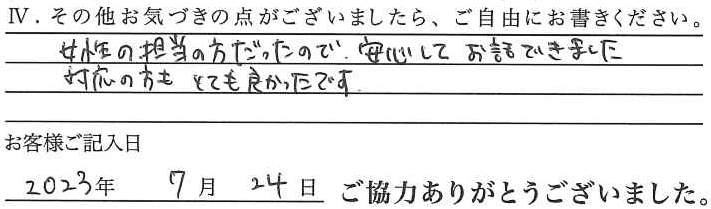 Ⅳ．その他お気づきの点がございましたら、ご自由にお書きください。
女性の担当の方だったので、安心して お話できました
対応の方も とても良かったです。
お客様ご記入日
2023年 7月 24日 ご協力ありがとうございました。